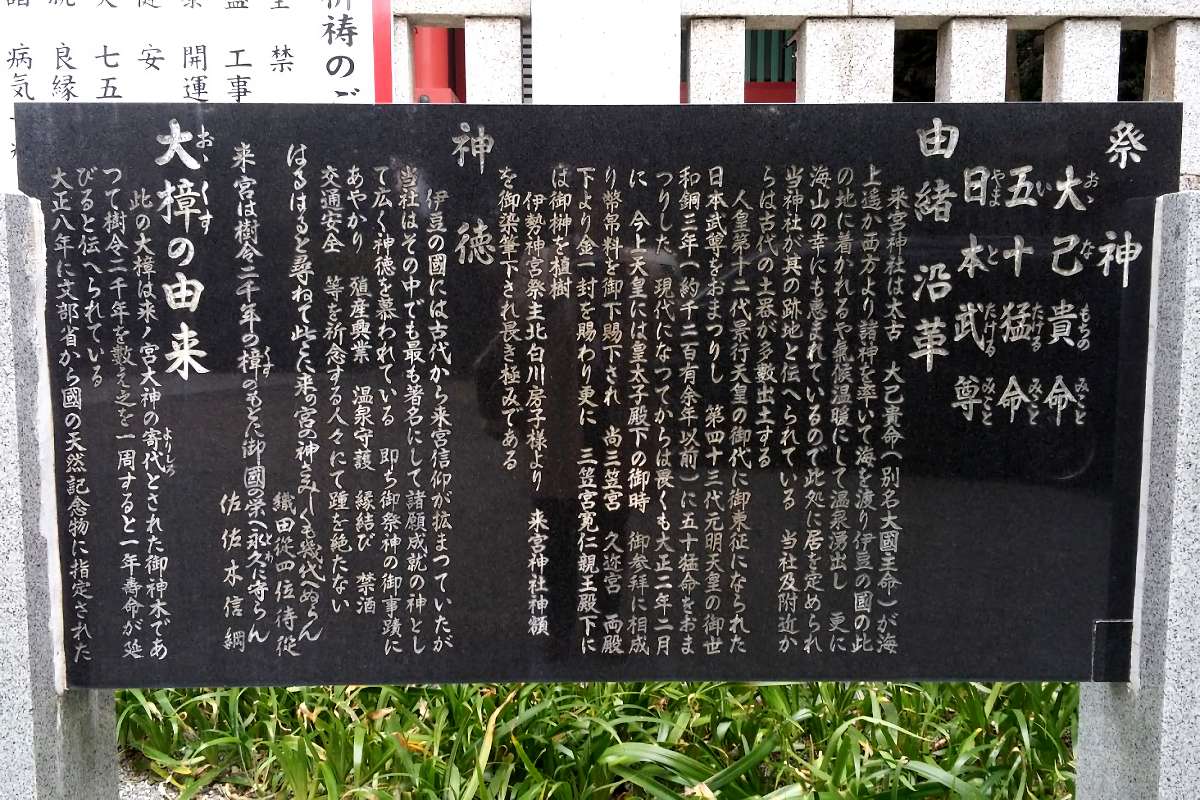 祭神
大己貴命
おゝなもちのみこと
五十猛命
いたけるみこと
日本武尊
やまとたけるみこと
由緒沿革
来宮神社は太古　大己貴命(別名大國主命)が海
上遥か西方より諸神を率いて海を渡り伊豆の國の此
の地に着かれるや氣候温暖にして温泉湧出し　更に
海山の幸にも恵まれているので此処に居を定められ
当神社が其の跡地と伝へられている　当社及附近か
らは古代の土器が多数出土する
人皇第十二代景行天皇の御代に御東征になられた
日本武尊をおまつりし　第四十三代元明天皇の御世
和銅三年(約千二百有余年以前)に五十猛命をおま
つりした　現代になつてからは畏くも大正二年二月
に　今上天皇には皇太子殿下の御時　御参拝に相成
り幣帛料を御下賜下され　尚三笠宮　久迩宮　両殿
下より金一封を賜わり更に　三笠宮寛仁親王殿下に
は御榊を植樹
伊勢神宮祭主北白川房子様より　来宮神社神額
を御染筆下され畏き極みである
神徳
伊豆の國には古代から来宮信仰が拡まつていたが
当社はその中でも最も著名にして諸願成就の神とし
て広く神徳を慕われている　即ち御祭神の御事蹟に
あやかり　殖産興業　温泉守護　縁結び　禁酒
交通安全　等を祈念する人々にて踵を絶たない
はるはると尋ねて此とに来の宮の神さみしくも幾代へぬらん
織田従四位待従
来宮は樹令二千年の樟のもとに御國の栄へ永久に守らん
くす
佐佐木信綱
大樟の由来
おゝくす
此の大樟は来ノ宮大神の寄代とされた御神木であ
よりしろ
つて樹令二千年を数え之を一周すると一年寿命が延
びると伝へられている
大正八年に文部省から國の天然記念物に指定された
祈祷のご
禁
工事
開運
安
七五
良縁
病気